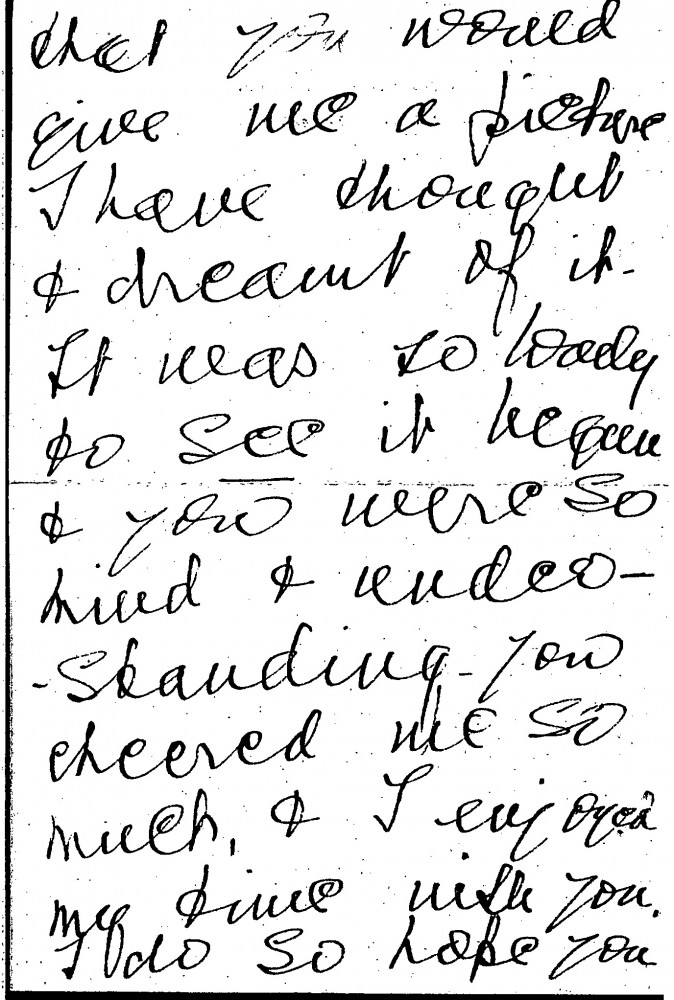 that you would
give me a picture
I have thought
& dreamt of it.
It was so lovely
to see it began
& you were so
kind & under-
-standing. You
cheered me so
much, & I enjoyed
my time with you.
I do so hope you